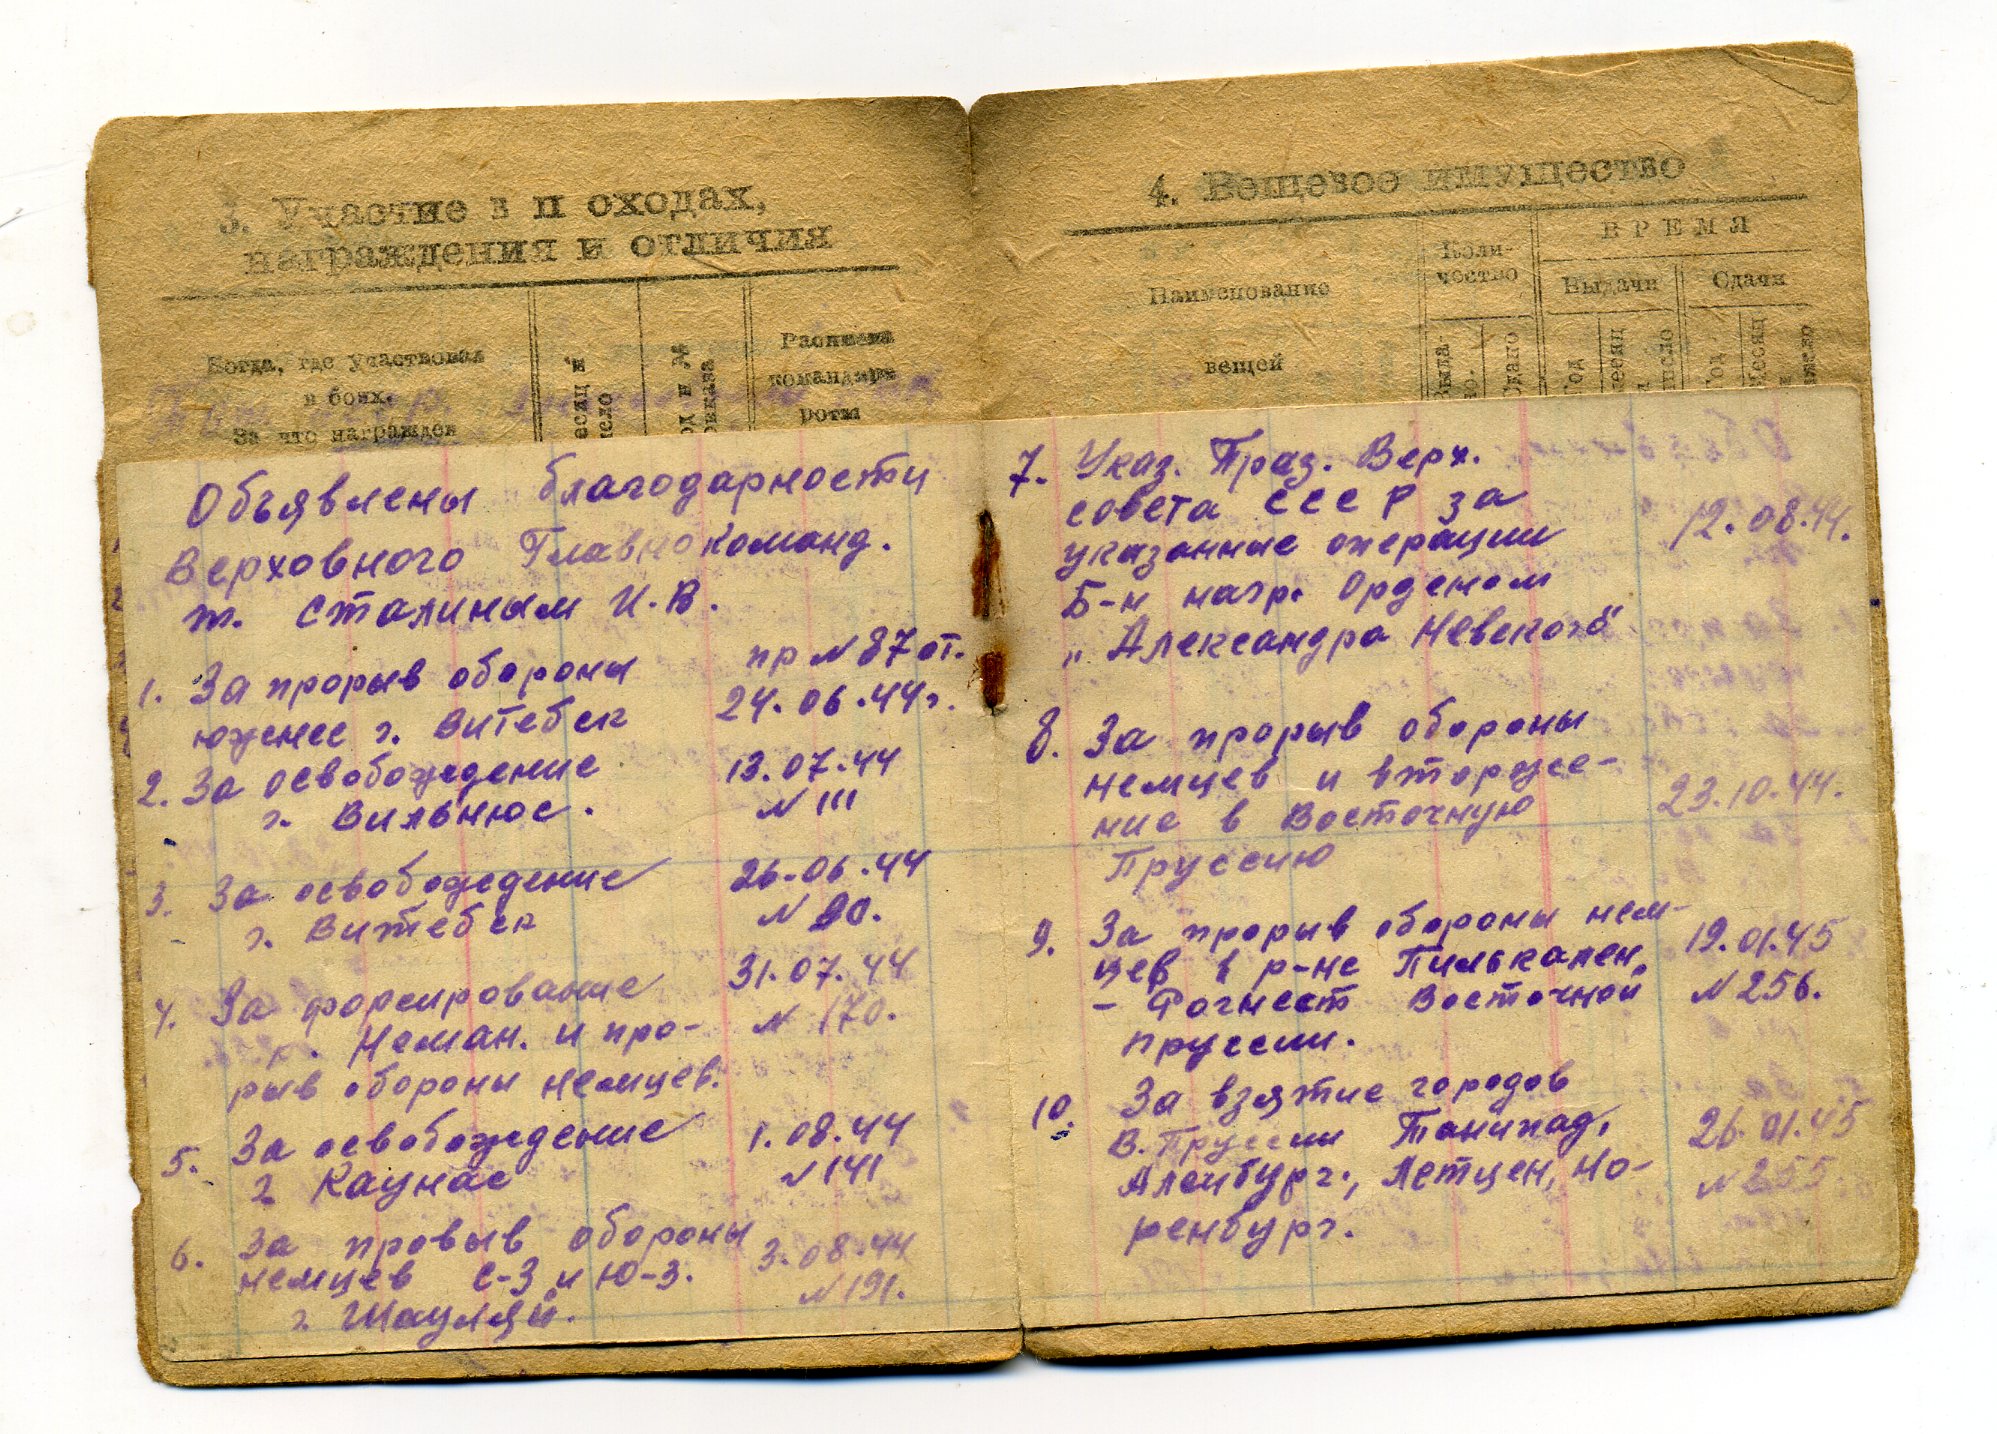 3. Участие в п оходах,
награждения и отличия
Когда, где участвовал
в боях.
За что награжден
есяц и
чело
од и №
риказа
Расписка
командира
роты
Объявлены благодарности
Верховного Главнокоманд.
т. Сталиным И.В.
1. За прорыв обороны пр N 87 от.
южнее г. Витебск 24.06.44г.
2. За освобождение 13.07.44
г. Вильнюс. N 111
3. За освобождение 26.06.44
г. Витебск N 90.
4. За форсирование 31.07.44
р. Неман. и про- N 170.
рыв обороны немцев.
5. За освобождение 1.08.44
г Каунас N 141
6. За провыв обороны 3.08.44
немцев С-З и Ю-З. N 191.
г. Шауляй.
4. Вещевое имущество
Наименование
вещей
Коли-
чество
ВРЕМЯ
Выдачи
Сдачи
Сдано
Год
Месяц
7. Указ. През. Верх.
совета СССР за
указанные операции 12.08.44.
Б-н нагр. Орденом
„Александра Невского"
8. За прорыв обороны
немцев и вторже-
ние в Восточную 23.10.44.
Пруссию
9. За прорыв обороны нем- 19.01.45
цев в р-не Пилькален,
- Рагнест Восточной N 256.
Пруссии.
10. За взятие городов
В.Пруссии Танипад, 26.01.45
Аленбург., Летцен, Но- N 255
ренбург.